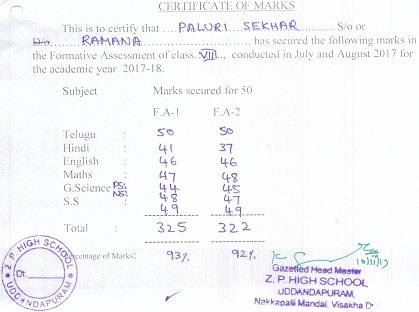 CERTIFICATE OF MARKS
This is to certify that ... PALURI SEKHAR ............ S/o or
D/o RAMANA ............ has secured the following marks in
the Formative Assessment of class. VIII..., conducted in July and August 2017 for
the academic year 2017-18.
Subject Marks secured for 50
F.A-1 F.A-2
Telugu : 50 50
Hindi : 41 37
English : 46 46
Maths : 47 48
G.Science PS: 44 45
NS: 48 47
S.S : 49 49
Total : 325 322
Percentage of Marks: 93% 92%
Z. P. HIGH SCHOOL
Dt.
UDDANDAPURAM
Gazetted Head Master
Z. P. HIGH SCHOOL
UDDANDAPURAM,
Nakkapalli Mandal, Visakha D